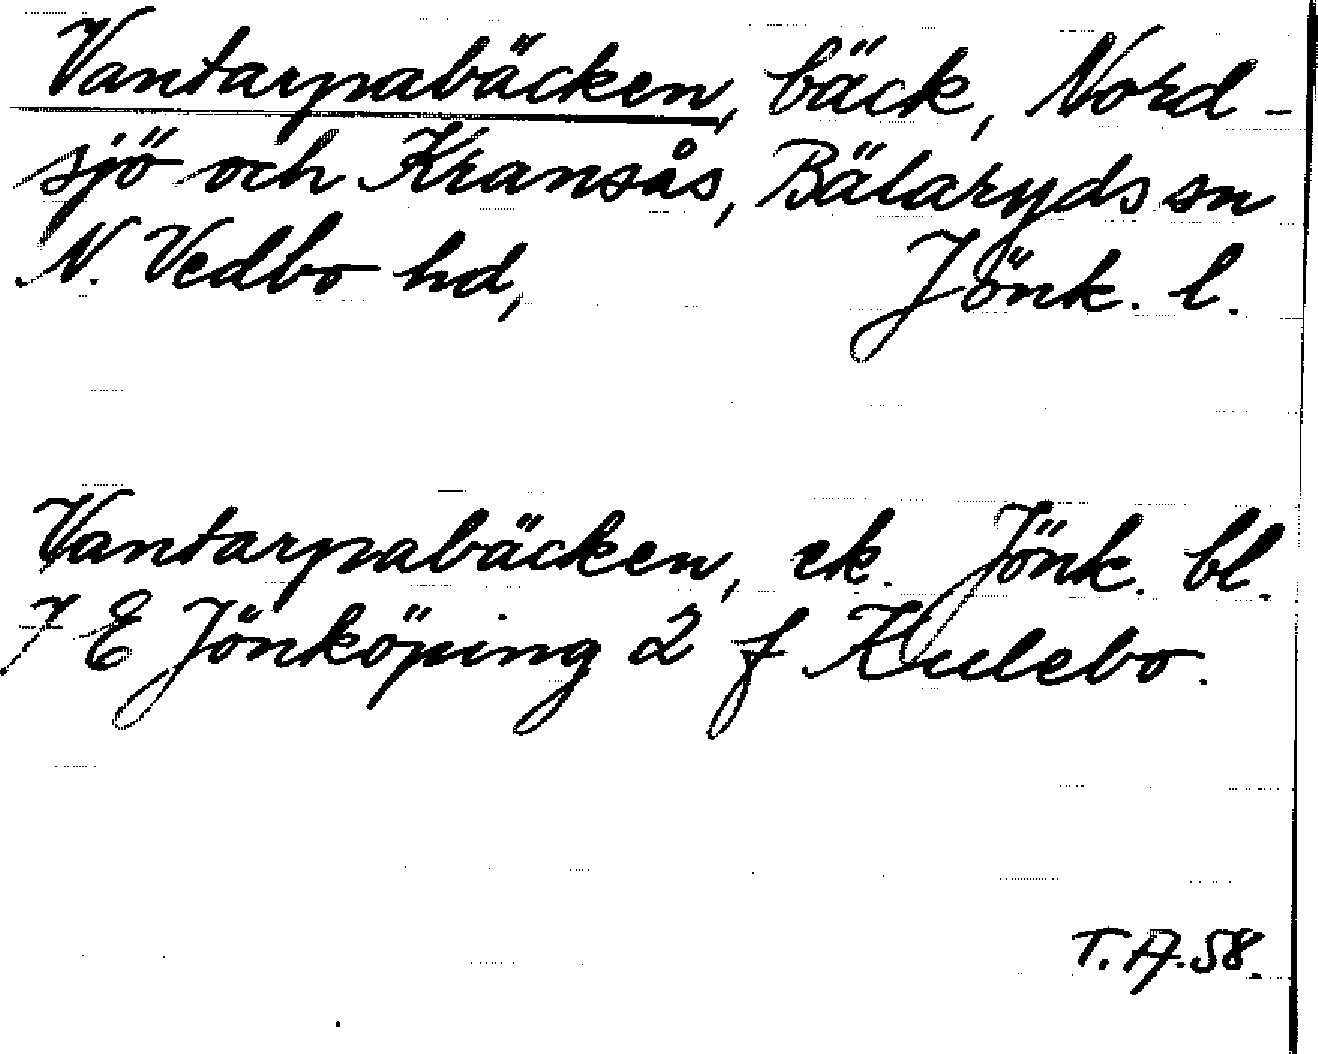 Vantarpabäcken, bäck, Nord-
sjö och Kransås, Bälaryds sn
N. Vedbo hd, Jönk. l.
Vantarpabäcken, ek. Jönk. bl.
7 E Jönköping 2 f Kulebo.
T. A. 58.